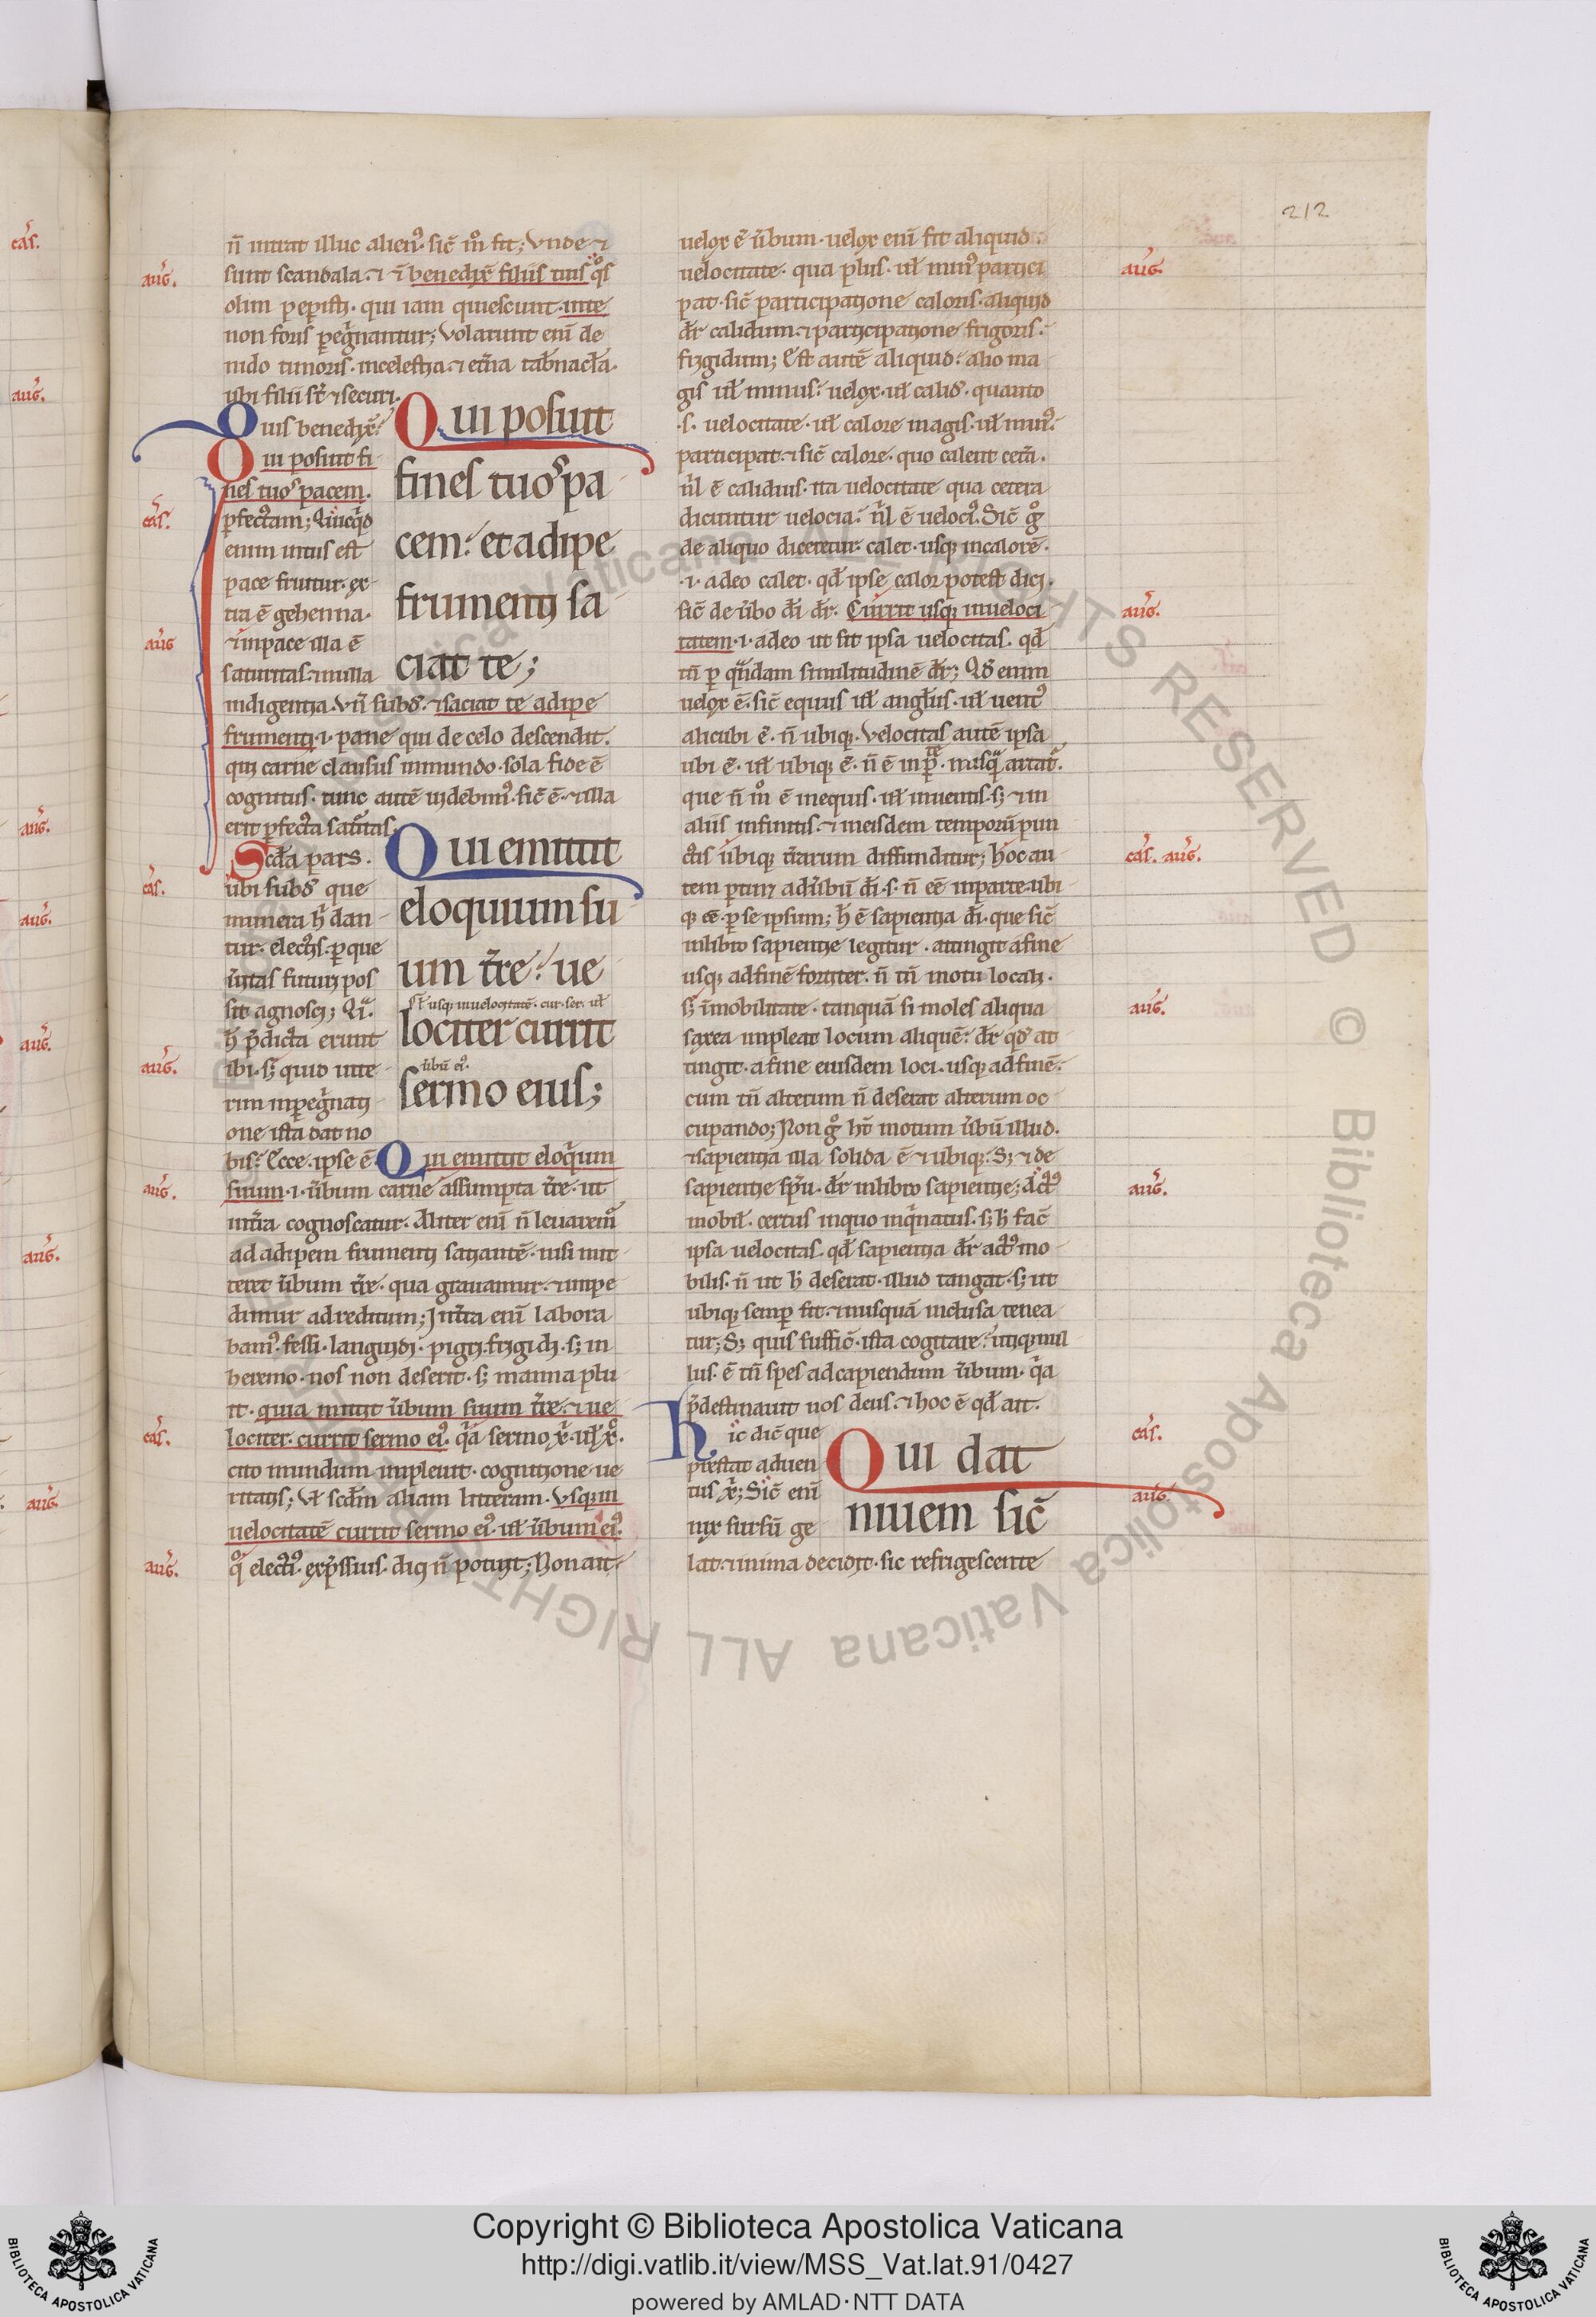 212
n̄ intrat illuc alienꝰ. sic̄ m̊ fit; Vnde ⁊
sunt scandala. ⁊ ī benedix̄ filiis tuis q̊s
olim peperisti. qui iam quiescunt. inte
non foris pegͥnantur; Volarunt enī de
nido timoris. incelestia. ⁊ etna tabnacla.
ubi filii st̄ ⁊ securi.
uis benedix̄.
Qui posuit fi
nes tuos pacem.
pfectam; Quicq̄d
enim intus est
pace fruitur. ex
tra ē gehenna.
⁊ inpace illa ē
saturitas. ⁊ nulla
Qui posuit
fines tuos pa
cem. et adipe
frumenti sa
ciat te;
indigentia. Vn̄ subd̄. ⁊ saciat te adipe
frumenti. i. pane qui de celo descendit.
qui carne clausus inmundo. sola fide ē
cognitus. tunc autē uidebimꝰ. sic̄ ē. ⁊ illa
erit pfecta saturitas.
Scd̄a pars.
ubi subd̄ que
munera h̄ dan
tur. electis. p que
ueritas futuri pos
sit agnosci;
h̄ p̄dicta erunt
ibi. sꝫ quid inte
rim inpegͥnati
one ista dat no
bis? Ecce. ipse ē.
Qui emittit
eloquium su
um tr̄e. ue
lociter currit
sermo eius;
ł usqꝫ inuelocitatē. cur. ser. ul̄
ūbū eiꝰ.
Qui emittit eloq̄um
suum. i. ūbum carne assumpta tr̄e. ut
intr̄a cognoscatur. Aliter enī n̄ leuaremꝰ
ad adipem frumenti satiantē. nisi mit
teret ūbum tr̄e. qua grauamur. ⁊ inpe
dimur ad reditum; Intr̄a enī labora
bamꝰ. fessi. languidi. pigri. frigidi. sꝫ in
heremo. nos non deserit. sꝫ manna plu
it. quia mittit ūbum suum tr̄e. ⁊ ue
lociter. currit sermo eiꝰ. q̄a sermo xp̄i. ul̄ xp̄s.
cito mundum impleuit. cognitione ue
ritatis; Vl̄ scd̄m aliam litteram. Usqꝫ in
uelocitatē currit sermo eiꝰ. ul̄ ūbum eiꝰ.
q̊ electiꝰ. exp̄ssius. dici n̄ potuit; Non ait.
uelox ē ūbum. uelox enī fit aliquid.
uelocitate. qua plus. ul̄ minꝰ partici
pat. sic̄ participatione caloris. aliquid
dr̄ calidum. ⁊ participatione frigoris.
frigidum; Est autē aliquid. alio ma
gis ul̄ minus. uelox. ul̄ calid̄. quanto
.s. uelocitate. ul̄ calore magis. ul̄ minꝰ.
participat. ⁊ sic̄ calore. quo calent cet̄a.
n̄l ē calidius. ita uelocitate qua cetera
dicuntur uelocia. n̄l ē uelociꝰ. Sic̄ g̊
de aliquo diceretur. calet. usqꝫ incalorē.
.i. adeo calet. qd̄ ipse calor potest dici.
sic̄ de ūbo dī dr̄. Currit usqꝫ inueloci
tatem. i. adeo ut sit ipsa uelocitas. qd̄
tn̄ p q̄ndam similitudinē dr̄; Qd̄ enim
uelox ē. sic̄ equus ul̄ anglus. ul̄ uentꝰ
alicubi ē. n̄ ubiqꝫ. Velocitas autē ipsa
ubi ē. ul̄ ubiqꝫ ē. n̄ ē inp̄te. nusq̄ artat̄.
que n̄ m̊ ē inequis. ul̄ inuentis. sꝫ ⁊ in
aliis infinitis. ⁊ ineisdem temporū pun
ctis ubiqꝫ tr̄arum diffunditur; Hoc au
tem ptin adūbū dī. s. n̄ ēē inparte. ubi
qꝫ ēē. p se ipsum; h̄ ē sapientia dī. que sic̄
inlibro sapientie legitur. attingit afine
usqꝫ adfinē fortiter. n̄ tn̄ motu locali.
sꝫ īmobilitate. tanquā si moles aliqua
saxea impleat locum aliquē. dr̄ qd̄ at
tingit. afine eiusdem loci. usqꝫ adfinē.
cum tn̄ alterum n̄ deserat alterum oc
cupando; Non g̊ ht̄ motum ūbū illud.
⁊ sapientia illa solida ē ⁊ ubiqꝫ. Sꝫ ⁊ de
sapientie sp̄u. dr̄ inlibro sapientie;
mobil. certus inquo inq̄natus. sꝫ h̄ fac̄
ipsa uelocitas. qd̄ sapientia dr̄ actꝰ mo
bilis. n̄ ut h̄ deserat. illud tangat. sꝫ ut
ubiqꝫ semp sit. ⁊ nusquā inclusa tenea
tur; Sꝫ quis suffic̄. ista cogitare. utiqꝫ nul
lus. ē tn̄ spes adcapiendum ūbum. q̄a
p̄destinauit nos deus. ⁊ hoc ē qd̄ ait.
Hic dic̄ que
prestat aduen
tus xp̄i; Sic̄ enī
nix sursū ge
Qui dat
niuem sic̄
lat. ⁊ inima decidit. sic refrigescente
cas.
aug.
aug.
aug.
aug.
aug.
aug.
cas.
aug
cas.
aug.
aug.
cas.
aug.
aug.
aug.
cas. aug.
aug.
aug.
cas.
aug.
© Biblioteca Apostolica Vaticana ALL RIGHTS RESERVED
Copyright © Biblioteca Apostolica Vaticana
http://digi.vatlib.it/view/MSS_Vat.lat.91/0427
powered by AMLAD·NTT DATA
BIBLIOTECA APOSTOLICA VATICANA
BIBLIOTECA APOSTOLICA VATICANA